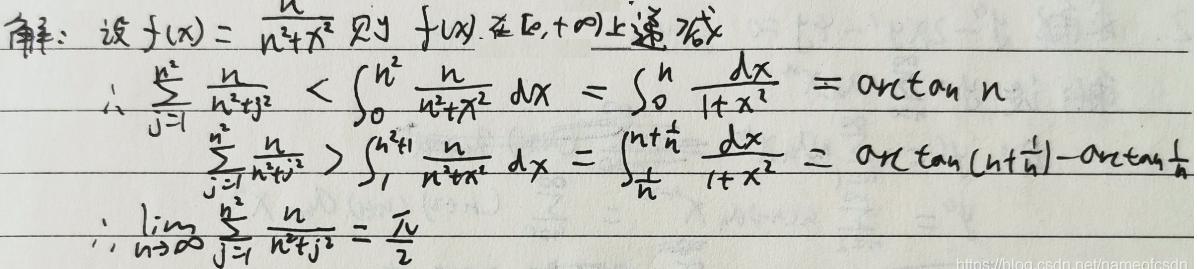 解: 设 f(x) = n/(n²+x²) 则 f(x) 在 [0, +∞) 上递减
∴ ∑_{j=1}^{n²} n/(n²+j²) < ∫_0^{n²} n/(n²+x²) dx = ∫_0^n dx/(1+x²) = arctan n
∑_{j=1}^{n²} n/(n²+j²) > ∫_1^{n²+1} n/(n²+x²) dx = ∫_{1/n}^{n+1/n} dx/(1+x²) = arctan(n+1/n) - arctan 1/n
∴ lim_{n→∞} ∑_{j=1}^{n²} n/(n²+j²) = π/2
https://blog.csdn.net/nameofcsdn